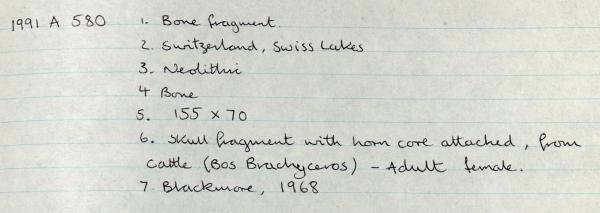 1991 A 580 1. Bone fragment.
2. Switzerland, Swiss Lakes
3. Neolithic
4 Bone
5. 155 x 70
6. Skull fragment with horn core attached, from
cattle (Bos Brachyceros) - Adult female.
7 Blackmore, 1968